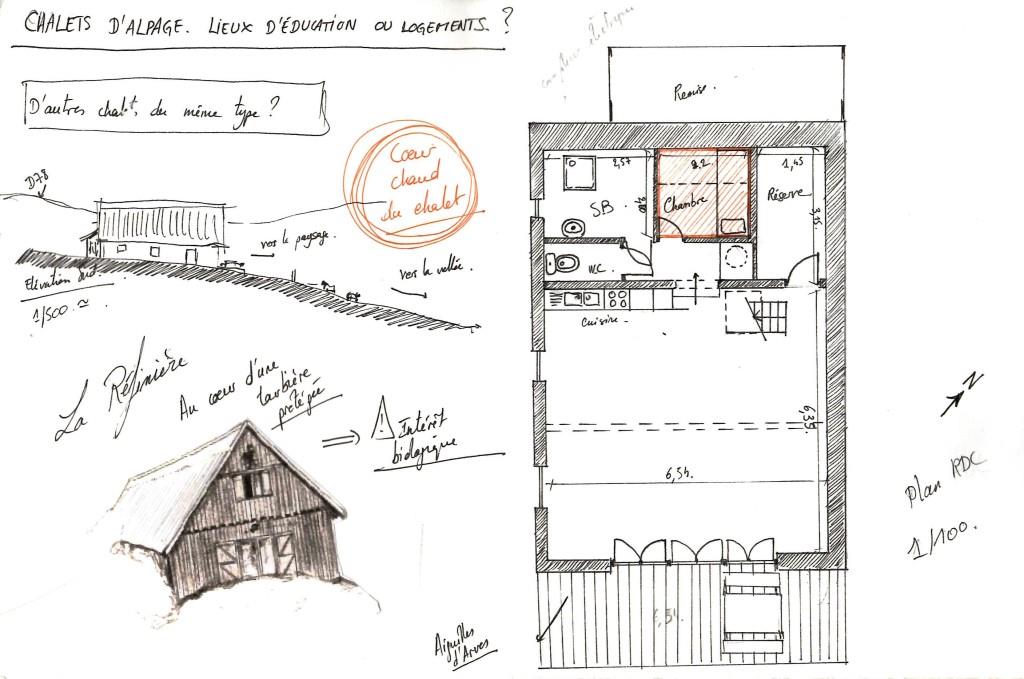 CHALETS D'ALPAGE. LIEUX D'ÉDUCATION OU LOGEMENTS. ?
D'autres chalets du même type ?
Cœur
chaud
du chalet
D78
vers le paysage.
vers la vallée.
Elévation sud
1/500. ≃
La Réfinière
Au cœur d'une
tourbière
protégée
⇒ ⚠ Intérêt
biologique
Aiguilles
d'Arves
compteur électrique
Remise.
2,57
2.2
1,45
SB.
Chambre
Réserve
3,15
WC.
Cuisine
6,39
6,54
6,54
N
Plan RDC
1/100.